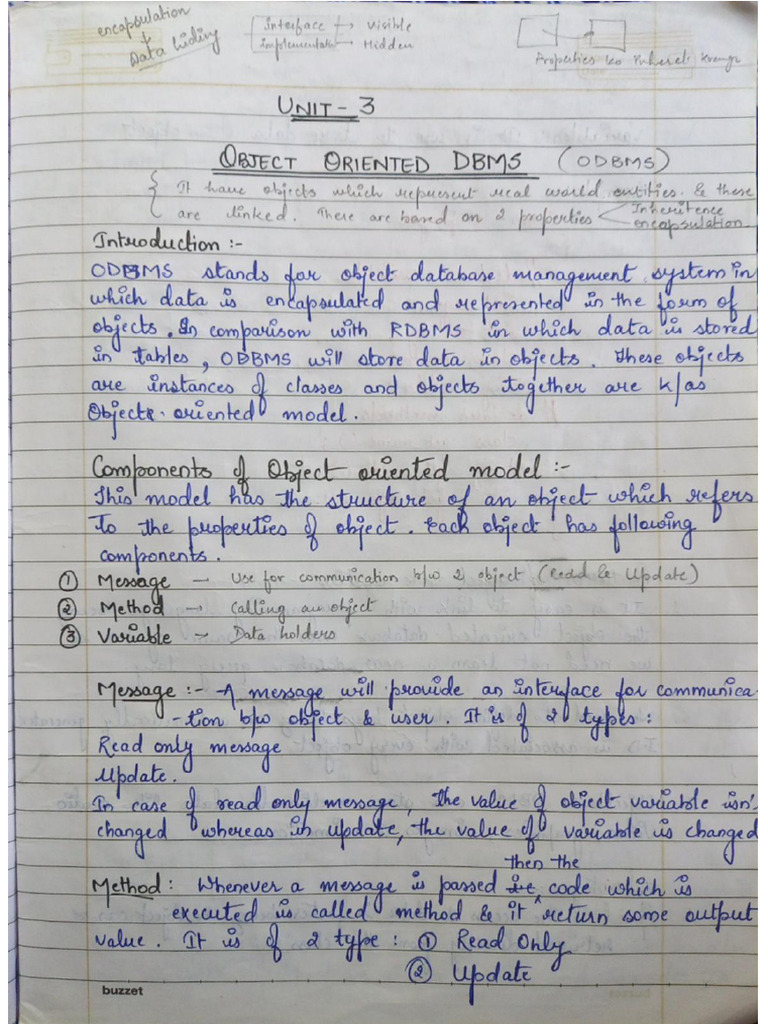 encapsulation
Data hiding
Interface → Visible
implementation → Hidden
Properties ko inherit
UNIT - 3
OBJECT ORIENTED DBMS (ODBMS)
It have objects which represent real world entities & these
are linked. There are based on 2 properties
Inheritence
encapsulation
Introduction :-
ODBMS stands for object database management system in
which data is encapsulated and represented in the form of
objects. In comparison with RDBMS in which data is stored
in tables, ODBMS will store data in objects. These objects
are instances of classes and objects together are k/as
Object oriented model.
Components of Object oriented model :-
This model has the structure of an object which refers
to the properties of object. Each object has following
components.
① Message — Use for communication b/w 2 object (Read & Update)
② Method → Calling an object
③ Variable — Data holders
Message :- A message will provide an interface for communica
-tion b/w object & user. It is of 2 types :
Read only message
Update.
In case of read only message, the value of object variable isn't
changed whereas in update, the value of variable is changed
then the
Method : Whenever a message is passed it code which is
executed is called method & it return some output
value. It is of 2 type : ① Read Only
② Update
buzzet